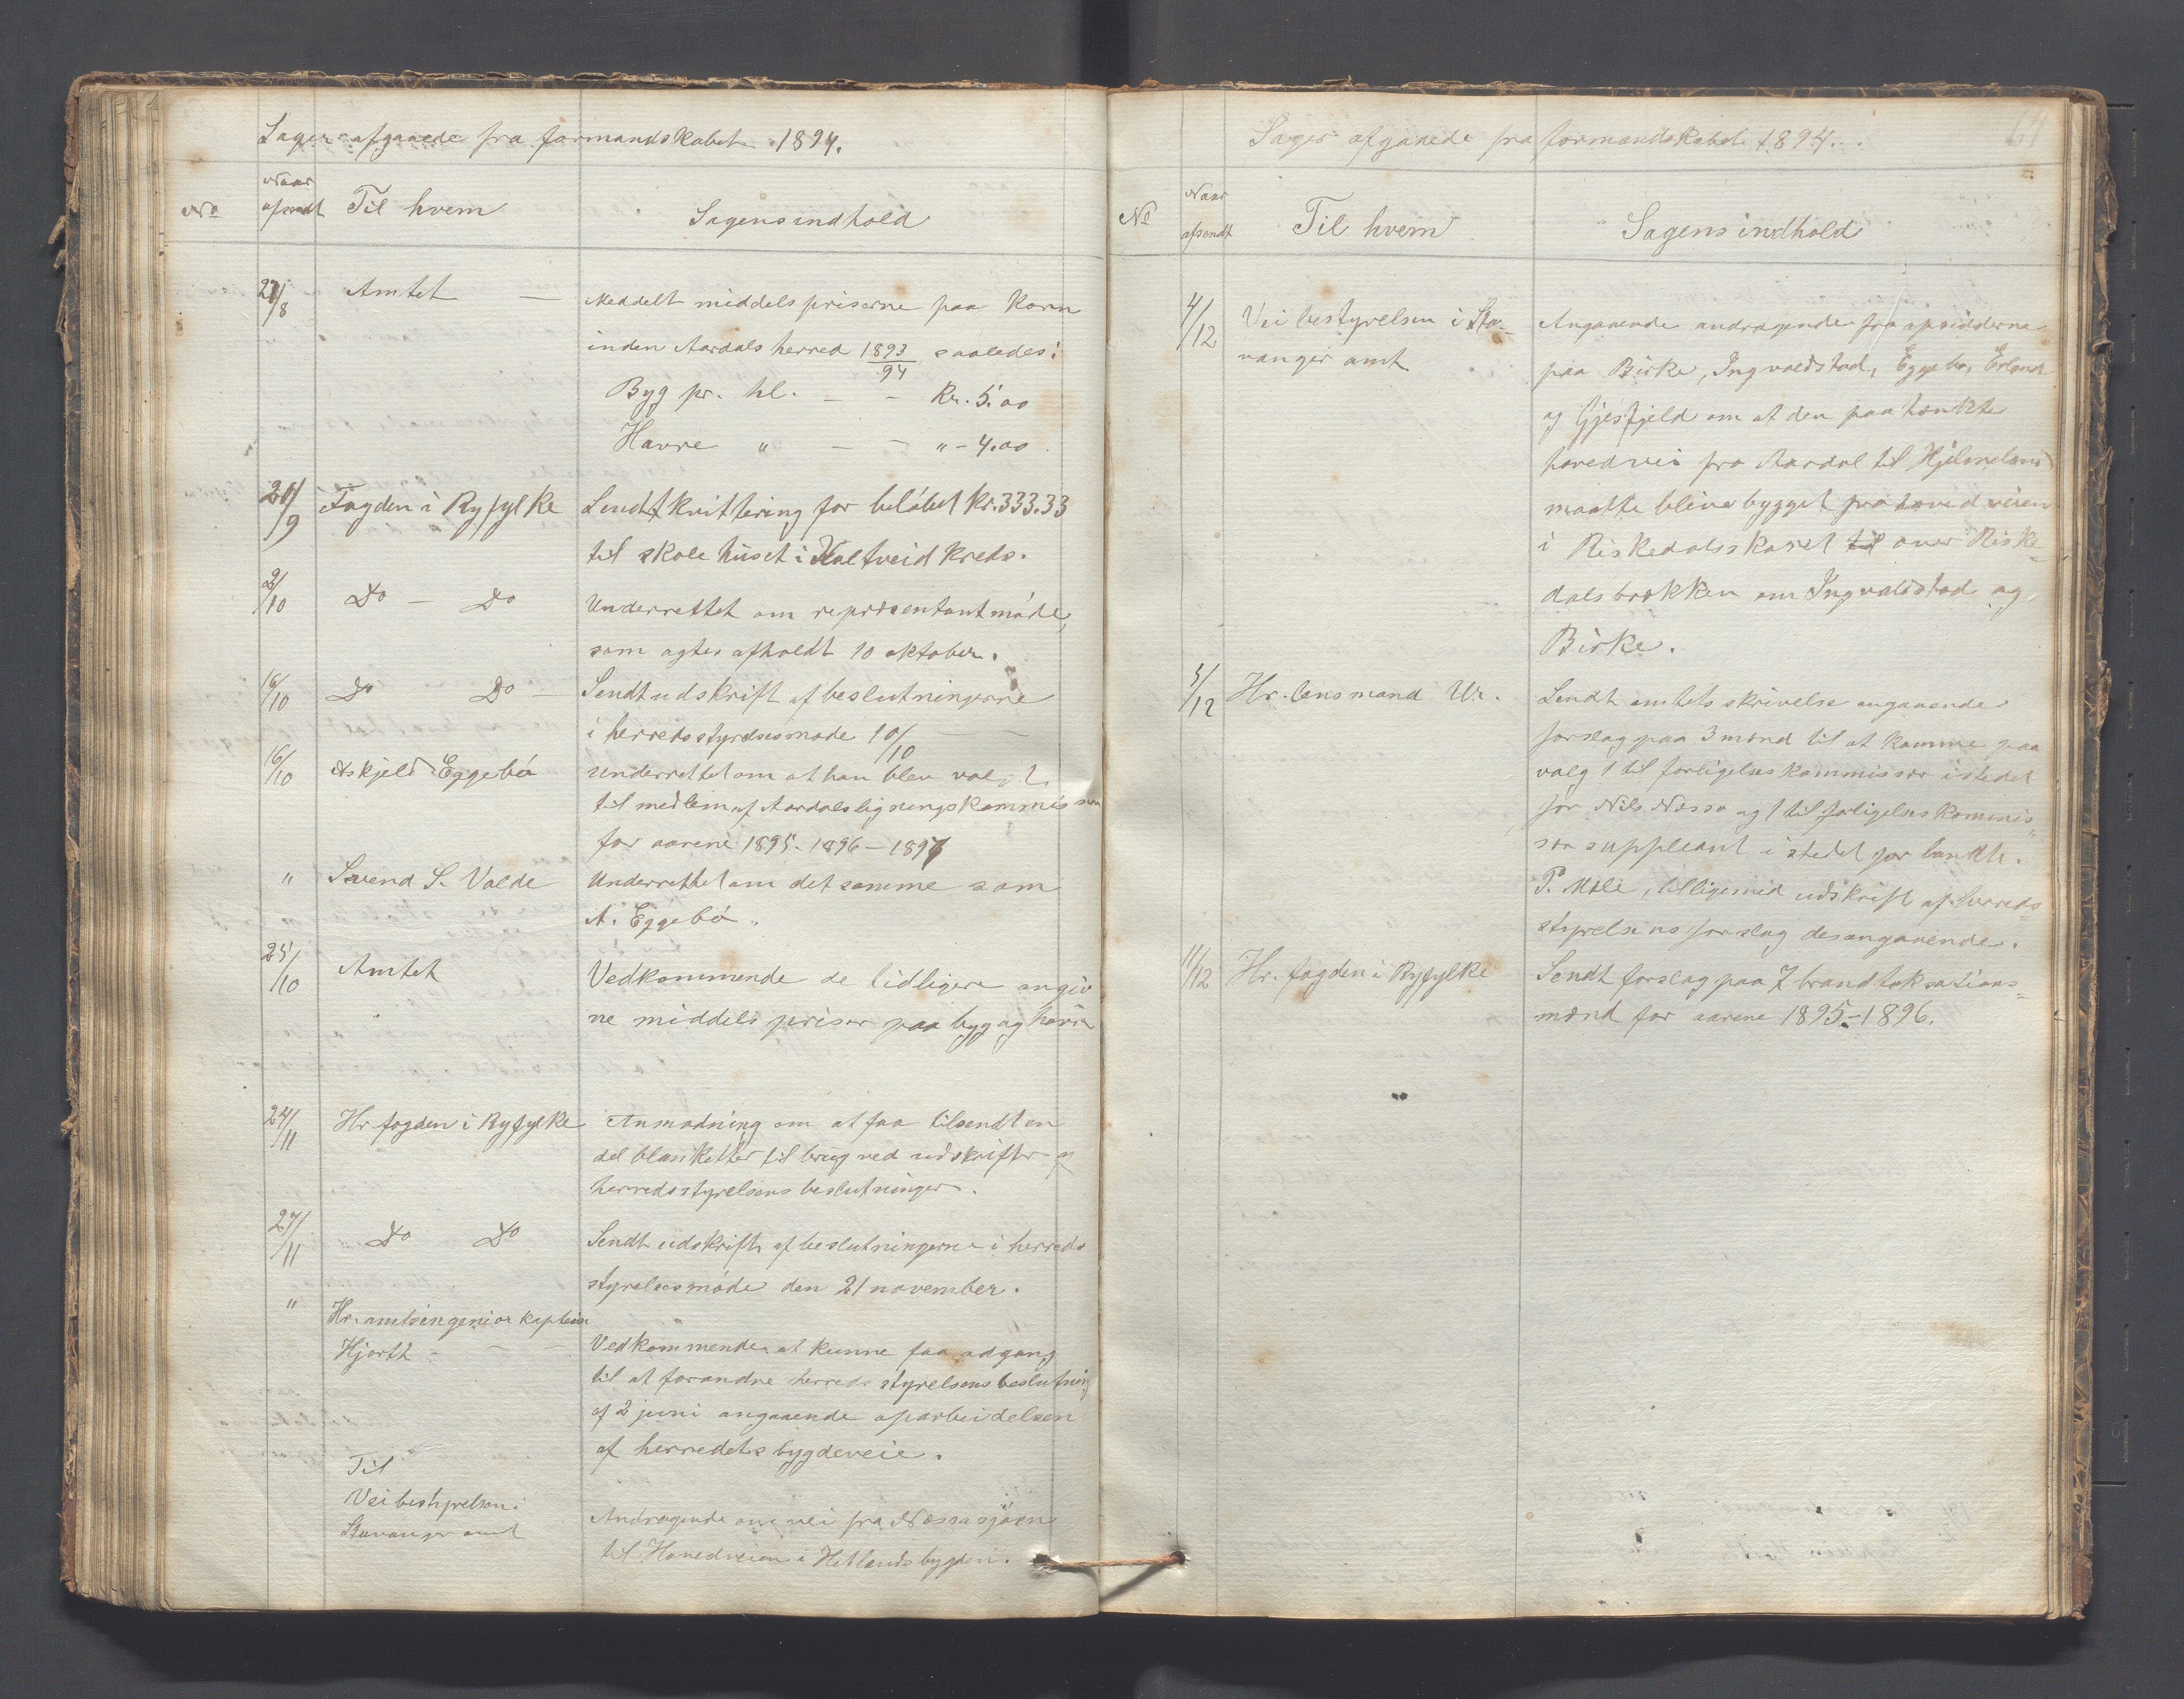 Sager afgaaede fra formandskabet 1894.
No
Naar afsendt
Til hvem
Sagens indhold
27/8
Amtet —
Meddelt middelspriserne paa korn
inden Aardals herred 1893/94 saaledes:
Byg pr. hl. — - Kr. 5.00
Havre " — - " - 4.00
/9
Fogden i Ryfylke
Sendt kvittering for belöbet kr. 333.33
til skolehuset i Valtveid kreds.
2/10
Do — Do
Underrettet om repræsentantmöde,
som agtes afholdt 10 oktober.
16/10
Do Do —
Sendt udskrift af beslutningerne
i herredsstyrelsesmøde 10/10 — —
16/10
Askjeld Eggebö
Underrettet om at han blev valgt
til medlem af Aardals ligningskommission
for aarene 1895-1896-1897
"
Svend S. Valde
Underrettet om det samme som
A. Eggebö.
25/10
Amtet
Vedkommende de tidligere angiv
ne middelspriser paa byg og havre
24/11
Hr. fogden i Ryfylke
Anmodning om at faa tilsendt en
del blanketter til brug ved udskrifter af
herredsstyrelsens beslutninger.
27/11
Do Do
Sendt udskrift af beslutningerne i herreds
styrelsesmöde den 21 november.
"
Hr. amtsingeniør kaptein
Hjorth - — —
Vedkommende at kunne faa adgang
til at forandre herredsstyrelsens beslutning
af 2 juni angaaende oparbeidelsen
af herredets bygdeveie.
Til
Veibestyrelsen i
Stavanger amt
Andragende om vei fra Nessasjöen
til Hovedveien i Hetlandsbygden.
Sager afgaaede fra formandskabet 1894.
No
Naar afsendt
Til hvem
Sagens indhold
4/12
Veibestyrelsen i Sta-
vanger amt
Angaaende andragende fra opsidderne
paa Birke, Ingvaldstad, Eggebö, Erland
og Gjesfjeld om at den paatænkte
hovedvei fra Aardal til Hjelmeland
maatte blive bygget fra hovedveien
i Riskedalsskaret til over Riske-
dalsbrekken om Ingvaldstad og
Birke.
5/12
Hr. lensmand Ur.
Sendt amtets skrivelse angaaende
forslag paa 3 mænd til at komme paa
valg 1 til forligelseskommissær istedet
for Nils Nessa og 1 til forligelseskommis-
sær suppleant i stedet for landh.
P. Mæle, tilligemed udskrift af herreds-
styrelsens forslag desangaaende.
11/12
Hr. fogden i Ryfylke
Sendt forslag paa 7 brandtaksations-
mænd for aarene 1895-1896.